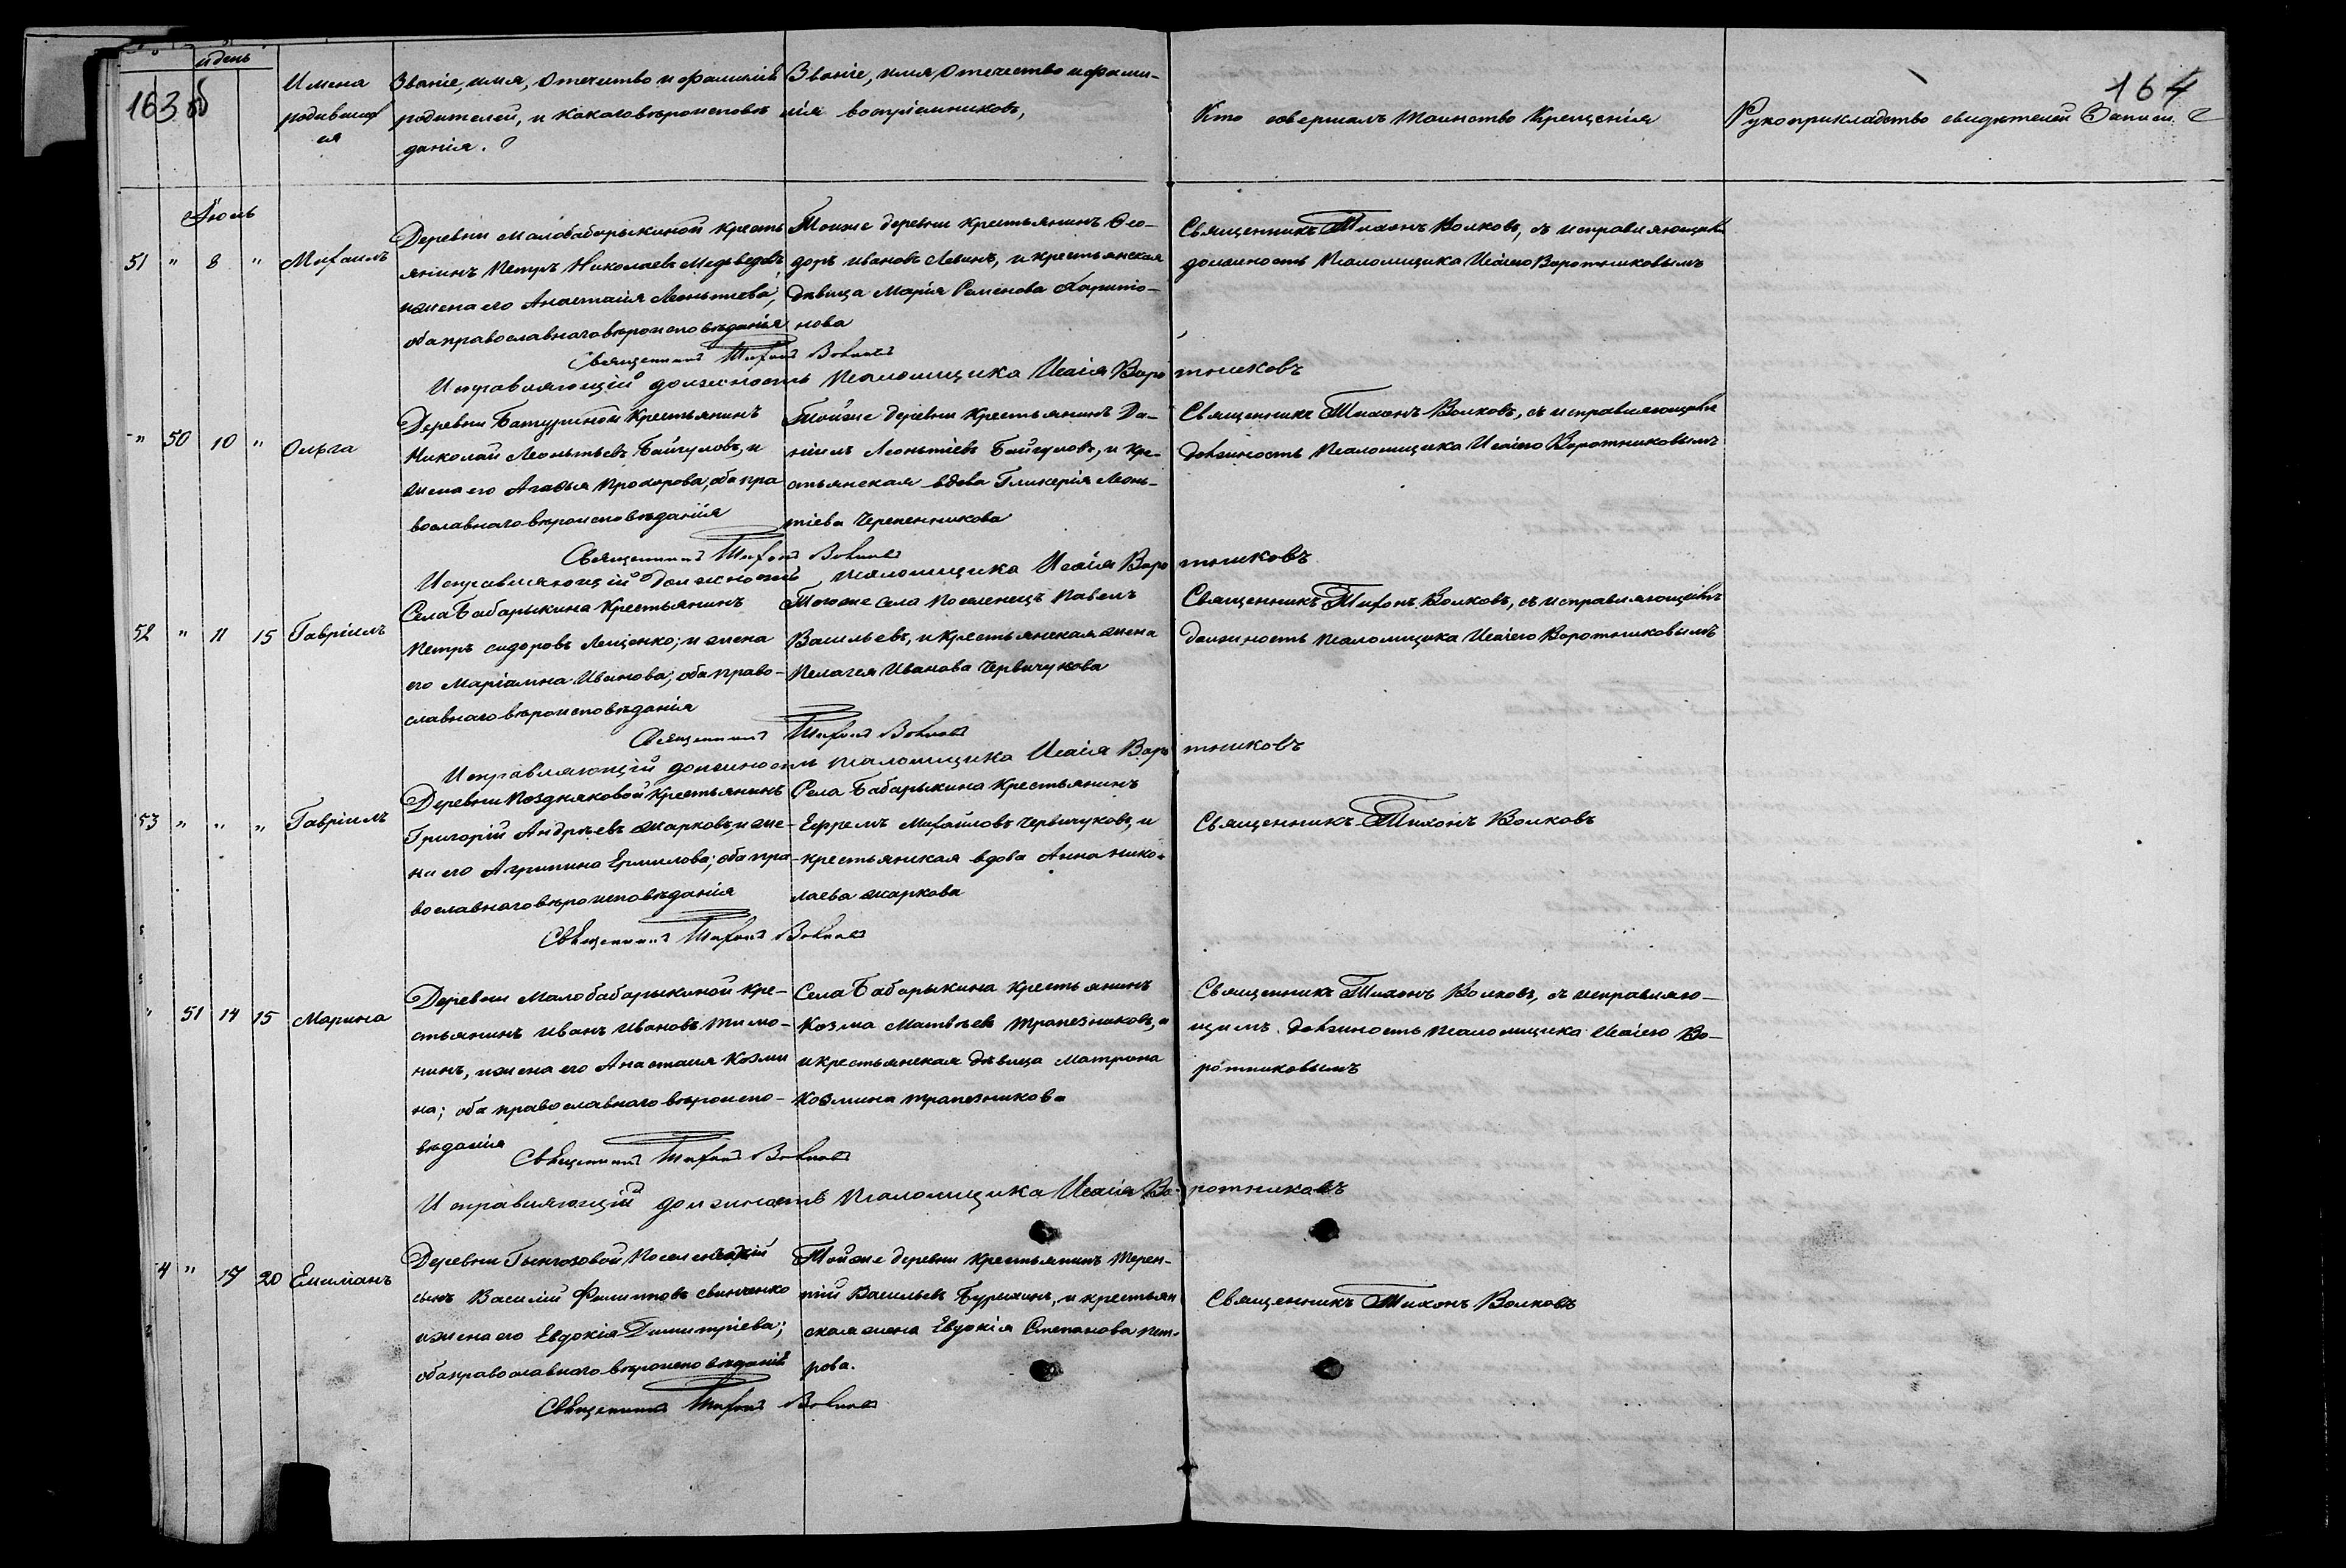 и день
163 об
164
Имена
родивших
ся
Званіе, имя, отечество и фамилія
родителей, и какого вѣроисповѣ
данія.
Званіе, имя, отечество и фами-
лія воспріемниковъ,
Кто совершалъ таинство Крещенія
Рукоприкладство свидѣтелей Записи
Іюль
51 " 8 " Михаилъ
Деревни Малобабарыкиной кресть
янинъ Петръ Николаевъ Медведевъ
и жена его Анастасія Леонтиева;
оба православнаго вѣроисповѣданія
Тойже деревни крестьянинъ Фео-
доръ Ивановъ Левинъ, и крестьянская
дѣвица Марія Семенова Харито-
нова
Священникъ Тихонъ Волковъ, съ исправляющимъ
должность Псаломщика Исаіею Воротниковымъ
Священникъ Тихонъ Волковъ
Исправляющій должность Псаломщика Исаія Воротниковъ
" 50 10 " Ольга
Деревни Батуриной Крестьянинъ
Николай Леонтьевъ Байгуловъ, и
жена его Агафья Прохорова; оба пра
вославнаго вѣроисповѣданія
Тойже деревни Крестьянинъ Да-
ніилъ Леонтіевъ Байгуловъ, и кре-
стьянская вдова Гликерія Леон-
тіева Черепенникова
Священникъ Тихонъ Волковъ, съ исправляющимъ
должность Псаломщика Исаіею Воротниковымъ
Священникъ Тихонъ Волковъ
Исправляющій должность Псаломщика Исаія Воротниковъ
52 " 11 15 Гавріилъ
Села Бабарыкина Крестьянинъ
Петръ Сидоровъ Лещенко; и жена
его Маріамна Иванова; оба право-
славнаго вѣроисповѣданія
Тогоже села Поселенецъ Павелъ
Васильевъ, и Крестьянская жена
Пелагея Иванова Червичукова
Священникъ Тихонъ Волковъ, съ исправляющимъ
должность Псаломщика Исаіею Воротниковымъ
Священникъ Тихонъ Волковъ
Исправляющій должность Псаломщика Исаія Воротниковъ
53 " " " Гавріилъ
Деревни Поздняковой Крестьянинъ
Григорій Андрѣевъ Жарковъ, и же-
на его Агрипина Ермилова; оба пра-
вославнаго вѣроисповѣданія
Села Бабарыкина Крестьянинъ
Ефремъ Михайловъ Червичуковъ, и
крестьянская вдова Анна Нико-
лаева Жаркова
Священникъ Тихонъ Волковъ
Священникъ Тихонъ Волковъ
" 51 14 15 Марина
Деревни Малобабарыкиной Кре-
стьянинъ Иванъ Ивановъ Тимо-
нинъ, и жена его Анастасия Козми
на; оба православнаго вѣроиспо-
вѣданія
Села Бабарыкина Крестьянинъ
Козма Матвѣевъ Трапезниковъ, и
и крестьянская дѣвица Матрона
Козмина Трапезникова
Священникъ Тихонъ Волковъ, съ исправляю-
щимъ должность Псаломщика Исаіею Во-
ротниковымъ
Священникъ Тихонъ Волковъ
Исправляющій должность Псаломщика Исаія Воротниковъ
4 " 17 20 Емиліанъ
Деревни
сынъ Василій Филипповъ Свинченко
и жена его Евдокія Димитріева;
оба православнаго вѣроисповѣданія
Тойже деревни Крестьянинъ Терен-
тій Васильевъ Бурихинъ, и крестьян
ская жена Евдокія Степанова Пет-
рова.
Священникъ Тихонъ Волковъ
Священникъ Тихонъ Волковъ